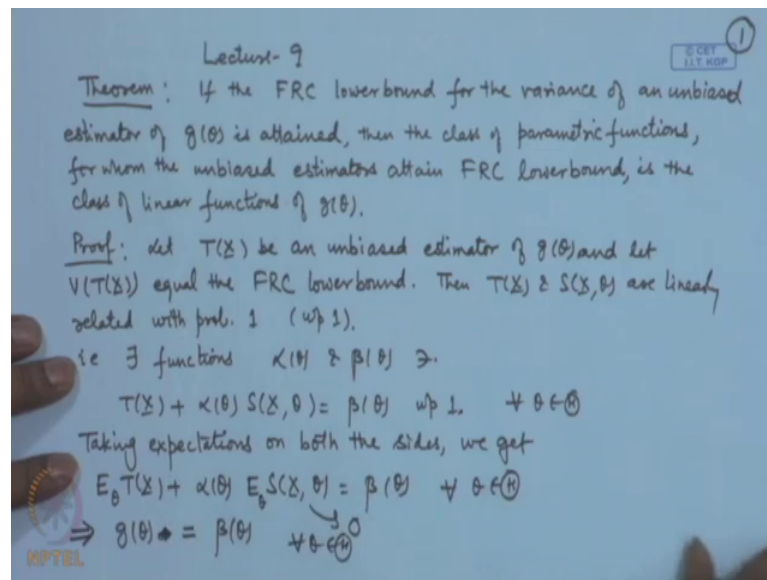 1
© CET
I.I.T. KGP
Lecture-9
Theorem : If the FRC lowerbound for the variance of an unbiased
estimator of g(θ) is attained, then the class of parametric functions,
for whom the unbiased estimators attain FRC lowerbound, is the
class of linear functions of g(θ).
Proof : Let T(X) be an unbiased estimator of g(θ) and let
V(T(X)) equal the FRC lowerbound. Then T(X) & S(X, θ) are linearly
related with prob. 1 (wp 1).
ie ∃ functions α(θ) & β(θ) ∋.
T(X) + α(θ) S(X, θ) = β(θ) wp 1. ∀ θ ∈ Ⓗ
Taking expectations on both the sides, we get
E_θ T(X) + α(θ) E_θ S(X, θ) = β(θ) ∀ θ ∈ Ⓗ
0
⇒ g(θ) = β(θ) ∀ θ ∈ Ⓗ
NPTEL